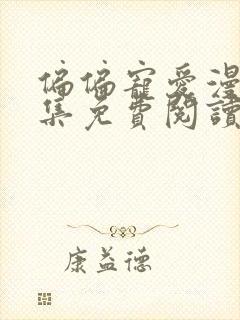 偏偏寵愛漫
集免費閱讀
康益德